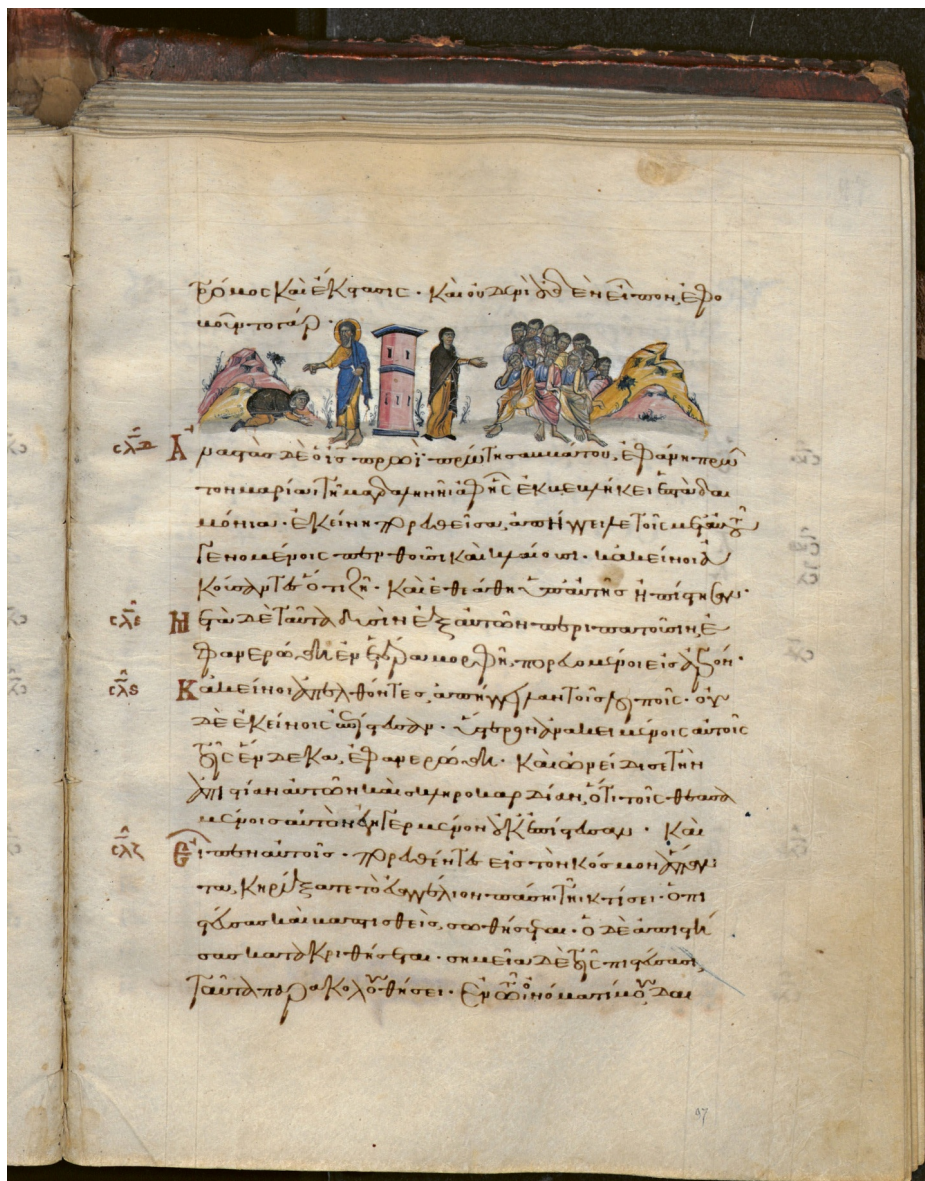 τρόμος καὶ ἔκστασις · καὶ οὐδενὶ οὐδὲν εἶπον, ἐφο
βοῦντο γάρ ·
σλδ Ἀναστὰς δὲ ὁ ἰς πρωῒ πρώτη σαββάτου, ἐφάνη πρῶ
τον μαρία τῆ μαγδαληνῆ ἀφ' ἧς ἐκβεβλήκει ἑπτὰ δαι
μόνια · ἐκείνη πορευθεῖσα, ἀπήγγειλε τοῖς μετ' αὐτοῦ
γενομένοις πενθοῦσι καὶ κλαίουσι · κἀκεῖνοι ἀ
κούσαντες ὅτι ζῆ · καὶ ἐθεάθη ὑπ' αὐτῆς ἠπίστησαν ·
σλε Μετὰ δὲ ταῦτα δυσὶν ἐξ αὐτῶν περιπατοῦσιν, ἐ
φανερώθη ἐν ἑτέρα μορφῆ, πορευομένοις εἰς ἀγρόν ·
σλς Κἀκεῖνοι ἀπελθόντες, ἀπήγγειλαν τοῖς λοιποῖς · οὐ
δὲ ἐκείνοις ἐπίστευσαν · ὕστερον ἀνακειμένοις αὐτοῖς
τοῖς ἕνδεκα, ἐφανερώθη · καὶ ὠνείδισε τὴν
ἀπιστίαν αὐτῶν καὶ σκληροκαρδίαν, ὅτι τοῖς θεασα
μένοις αὐτὸν ἐγηγερμένον οὐκ ἐπίστευσαν · Καὶ
σλζ εἶπεν αὐτοῖς · πορευθέντες εἰς τὸν κόσμον ἅπαν
τα, κηρύξατε τὸ εὐαγγέλιον πάση τῆ κτίσει · ὁ πι
στεύσας καὶ βαπτισθεὶς, σωθήσεται · ὁ δὲ ἀπιστή
σας κατακριθήσεται · σημεῖα δὲ τοῖς πιστεύσασι,
ταῦτα παρακολουθήσει · Ἐν τῶ ὀνόματί μου δαι
97